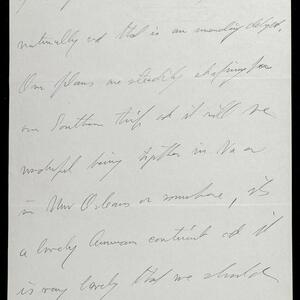 naturally and that is an unending delight.
Our plans are steadily shaping for
our Southern trip and it will be
wonderful being together in Va or
in New Orleans or somewhere, it's
a lovely American continent and it
is very lovely that we should